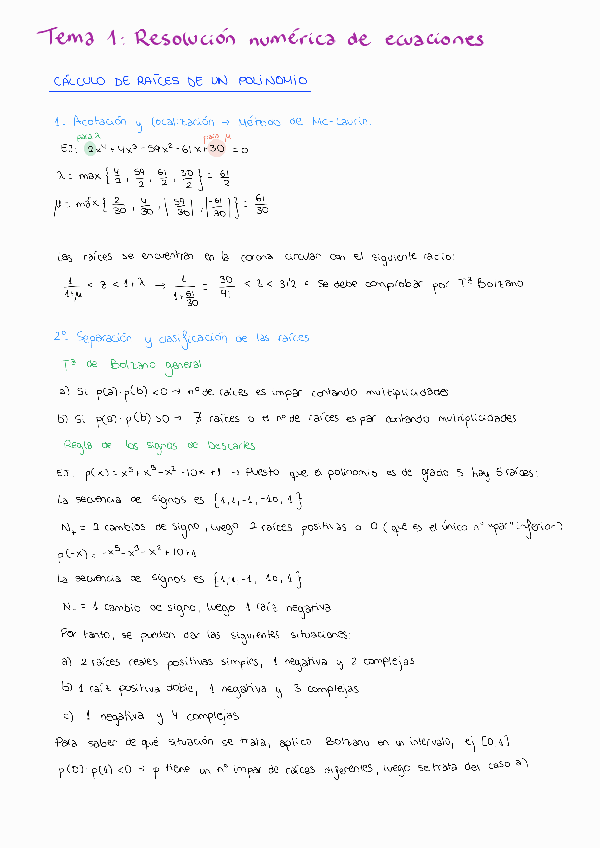 Tema 1: Resolución numérica de ecuaciones
CÁLCULO DE RAÍCES DE UN POLINOMIO
1. Acotación y localización → Método de Mc-Laurin.
para λ para μ
EJ: 2x⁴ + 4x³ - 59x² - 61x + 30 = 0
λ = max { 4/2, 59/2, 61/2, 30/2 } = 61/2
μ = máx { 2/30, 4/30, |59/30|, |-61/30| } = 61/30
Las raíces se encuentran en la corona circular con el siguiente radio:
1/(1+μ) < z < 1+λ → 1/(1+61/30) = 30/91 < z < 31'2 ← Se debe comprobar por Tª Bolzano
2º Separación y clasificación de las raíces
Tª de Bolzano general
a) Si p(a)·p(b) < 0 → nº de raíces es impar contando multiplicidades
b) Si p(a)·p(b) > 0 → raíces o el nº de raíces es par contando multiplicidades
Regla de los signos de Descartes
EJ: p(x) = x⁵ + x³ - x² - 10x + 1 → Puesto que el polinomio es de grado 5 hay 5 raíces:
La secuencia de signos es {1, 1, -1, -10, 1}
N₊ = 2 cambios de signo, luego 2 raíces positivas o 0 (que es el único nº "par" inferior)
p(-x) = -x⁵ - x³ - x² + 10 + 1
La secuencia de signos es {1, 1 -1, 10, 1}
N₋ = 1 cambio de signo, luego 1 raíz negativa
Por tanto, se pueden dar las siguientes situaciones:
a) 2 raíces reales positivas simples, 1 negativa y 2 complejas
b) 1 raíz positiva doble, 1 negativa y 3 complejas
c) 1 negativa y 4 complejas
Para saber de qué situación se trata, aplico Bolzano en un intervalo, ej [0 1]
p(0)·p(1) < 0 → p tiene un nº impar de raíces diferentes, luego se trata del caso a)